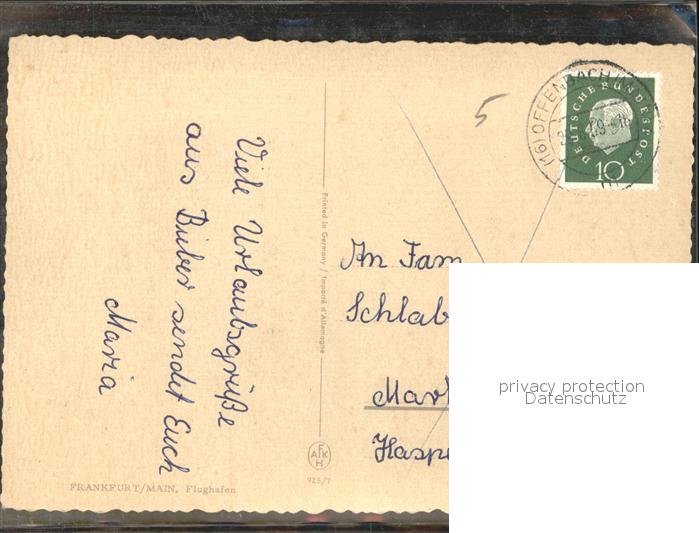 Viele Urlaubsgrüße
aus Bieber sendet Euch
Maria
FRANKFURT/MAIN, Flughafen
Printed in Germany / Importé d'Allemagne
AFKH
925/7
5
(16) OFFENBACH
DEUTSCHE BUNDESPOST
10
An Fam
Schlab
Mar
Hasp
privacy protection
Datenschutz